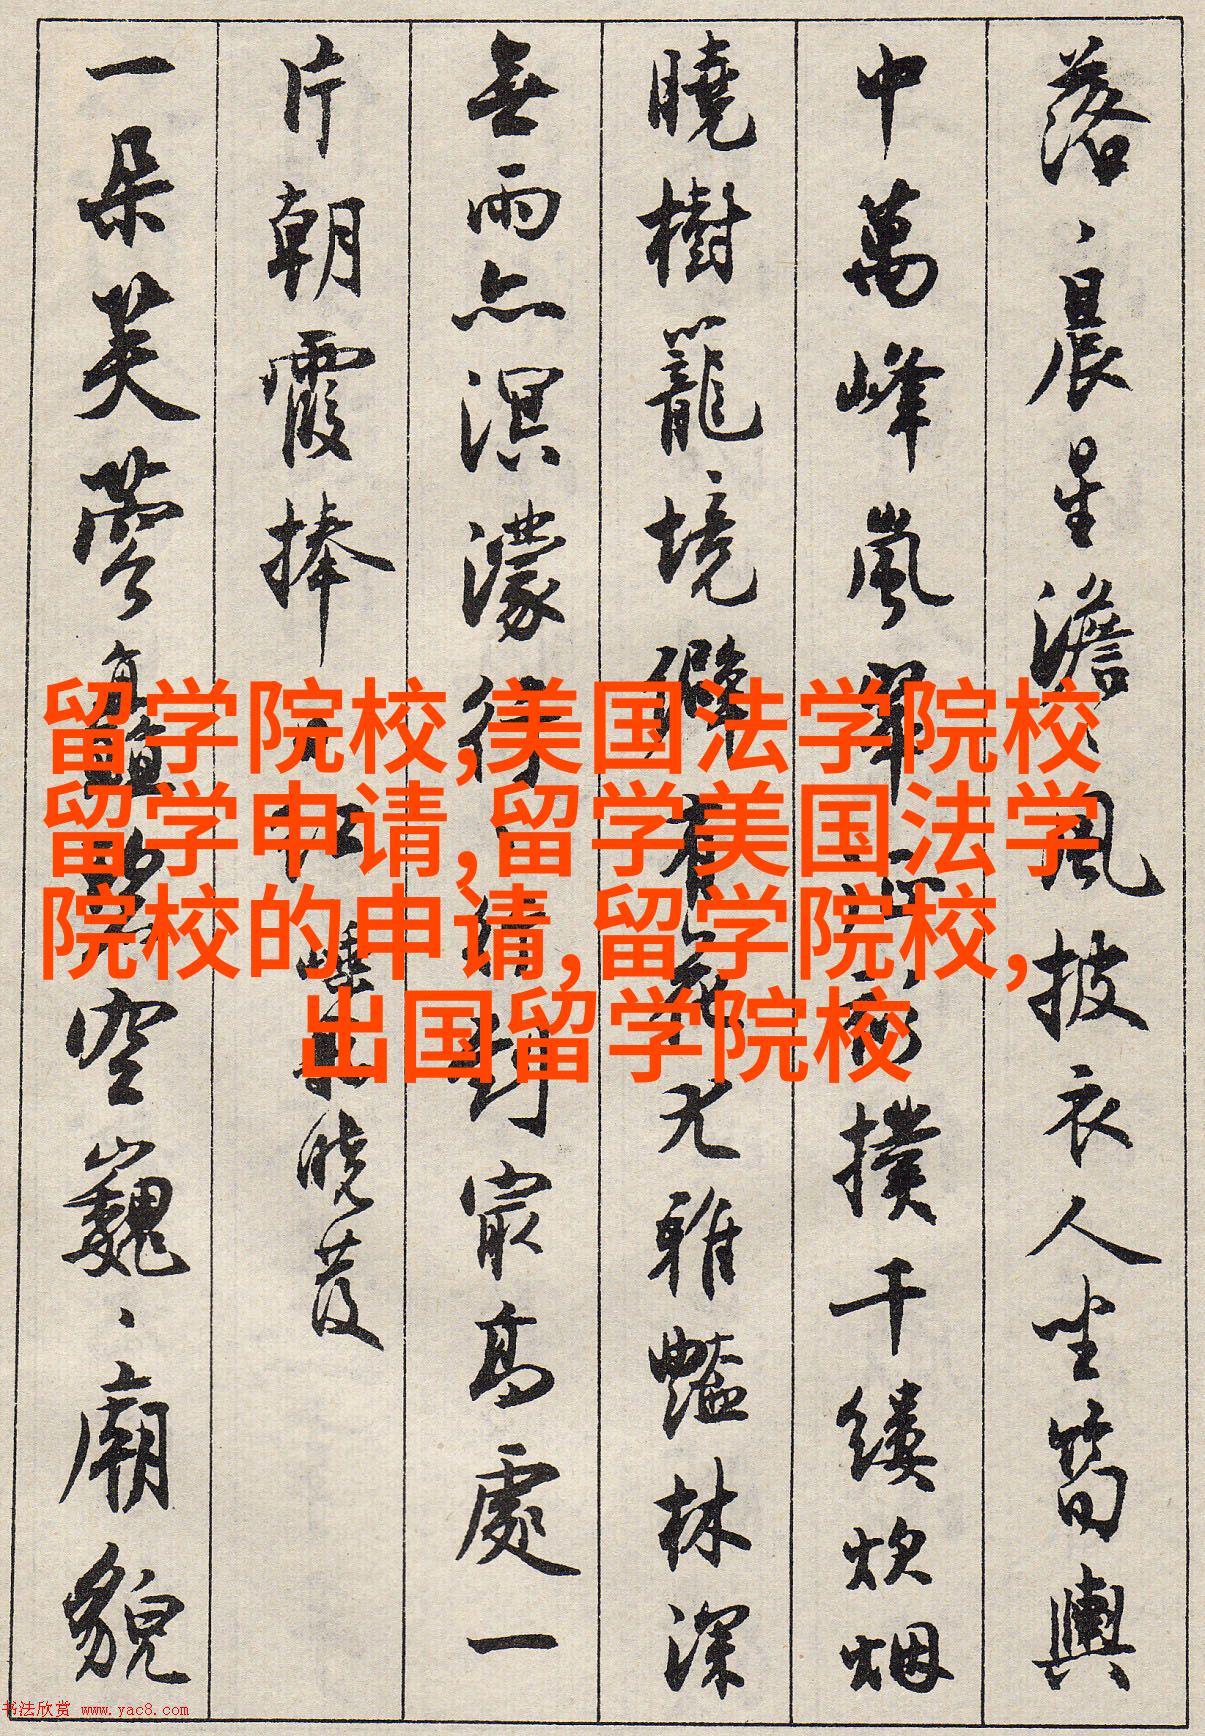 落、晨星澹風披衣人坐筍輿
中萬峰嵐翠撲千縷炊烟
曉樹籠境僻花尤雅豔林深
無雨亦溟濛行到最高處一
片朝霞捧
曉發
一朵芙蓉空巍、廟貌
留学院校,美国法学院校
留学申请,留学美国法学
院校的申请,留学院校,
出国留学院校
书法欣赏 www.yac8.com